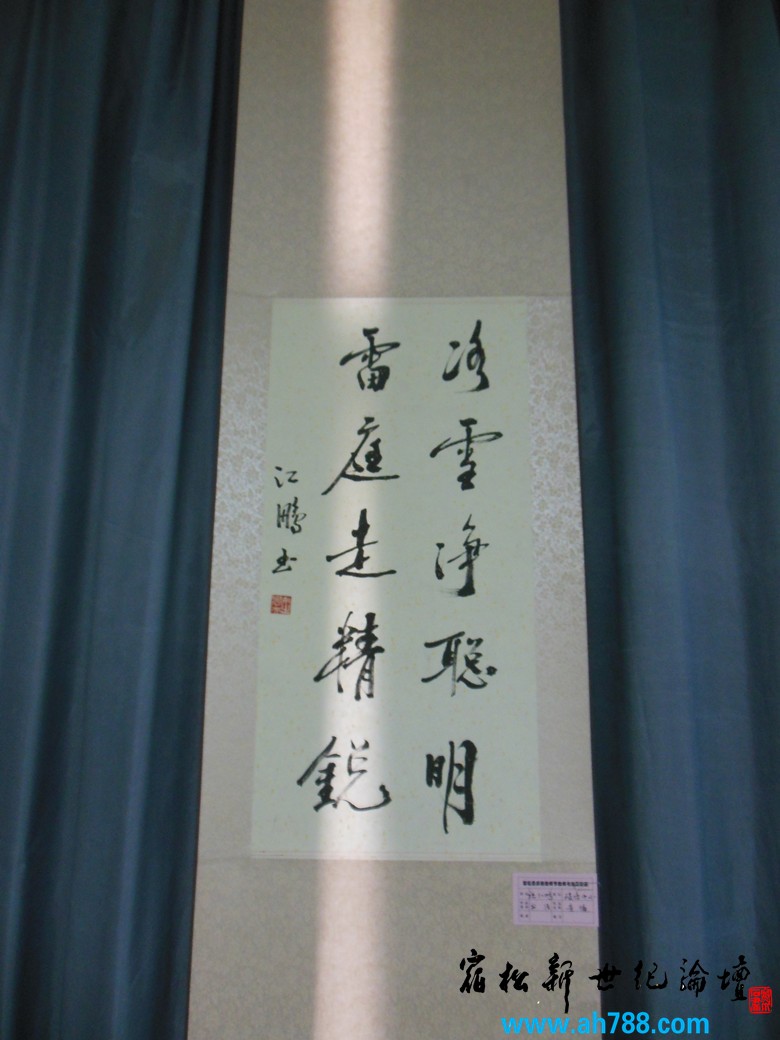 冰雪净聪明
雷庭走精銳
江鵬书
宿松新世纪論壇
www.ah788.com